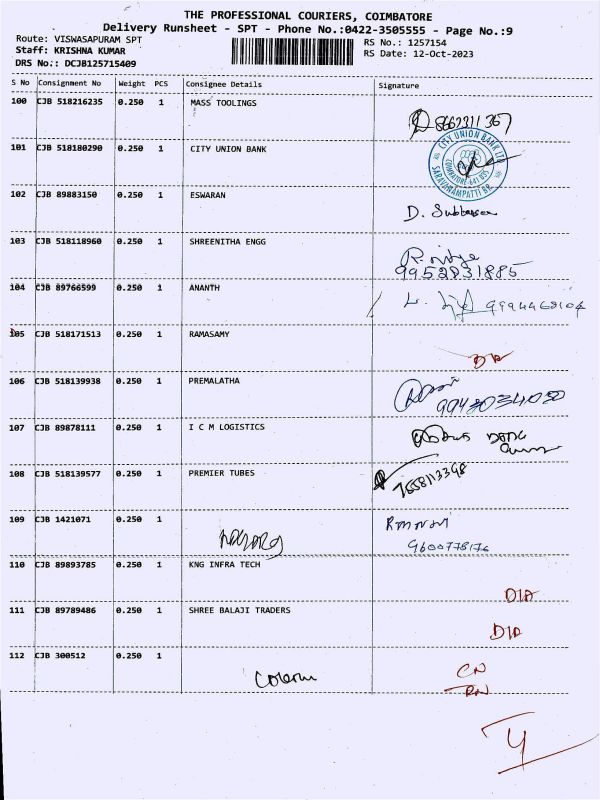 THE PROFESSIONAL COURIERS, COIMBATORE
Delivery Runsheet - SPT - Phone No.:0422-3505555 - Page No.:9
Route: VISWASAPURAM SPT
RS No.: 1257154
Staff: KRISHNA KUMAR
RS Date: 12-Oct-2023
DRS No.: DCJB125715409
S No Consignment No Weight PCS Consignee Details Signature
100 CJB 518216235 0.250 1 MASS TOOLINGS
8662311367
101 CJB 518180290 0.250 1 CITY UNION BANK
CITY UNION BANK LTD
COIMBATORE-641 035
SARAVANAMPATTI BR.
102 CJB 89883150 0.250 1 ESWARAN
103 CJB 518118960 0.250 1 SHREENITHA ENGG
9952831885
104 CJB 89766599 0.250 1 ANANTH
105 CJB 518171513 0.250 1 RAMASAMY
106 CJB 518139938 0.250 1 PREMALATHA
107 CJB 89878111 0.250 1 I C M LOGISTICS
108 CJB 518139577 0.250 1 PREMIER TUBES
7658113398
109 CJB 1421071 0.250 1
110 CJB 89893785 0.250 1 KNG INFRA TECH
DIA
111 CJB 89789486 0.250 1 SHREE BALAJI TRADERS
DIA
112 CJB 300512 0.250 1
CN